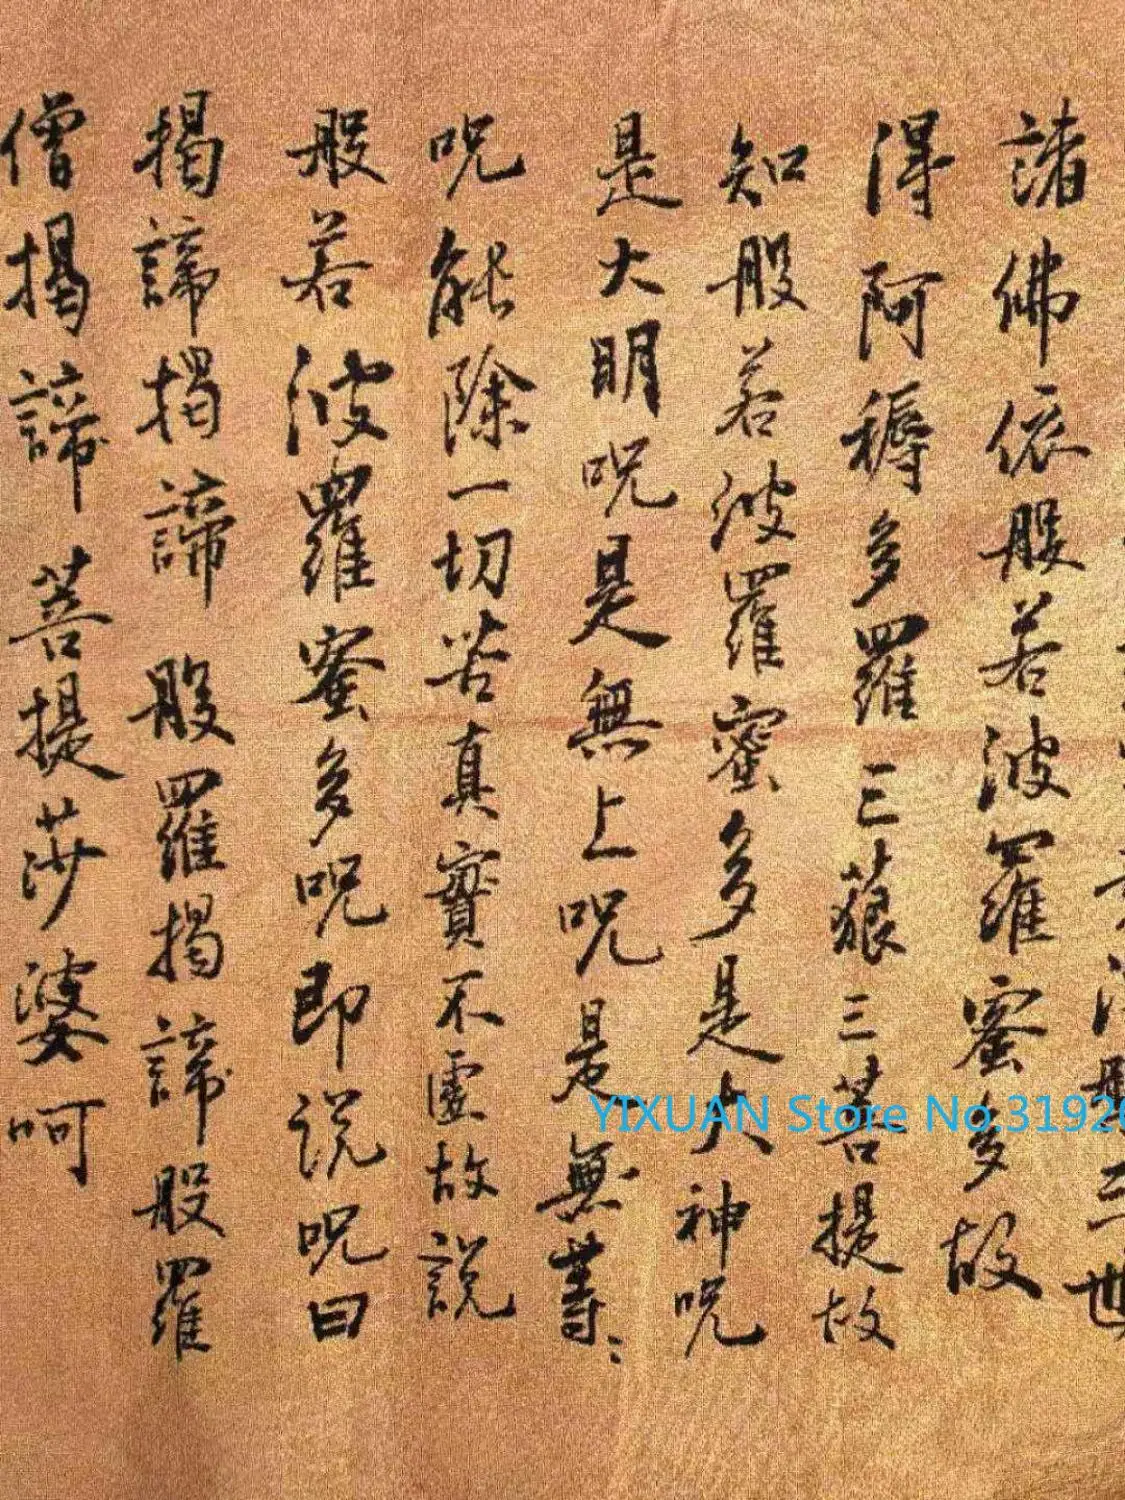 三世
諸佛依般若波羅蜜多故
得阿耨多羅三藐三菩提故
知般若波羅蜜多是大神呪
是大明呪是無上呪是無等〻
呪能除一切苦真實不虛故說
般若波羅蜜多呪即說呪曰
揭諦揭諦般羅揭諦般羅
僧揭諦菩提莎婆呵
YIXUAN Store No.3192